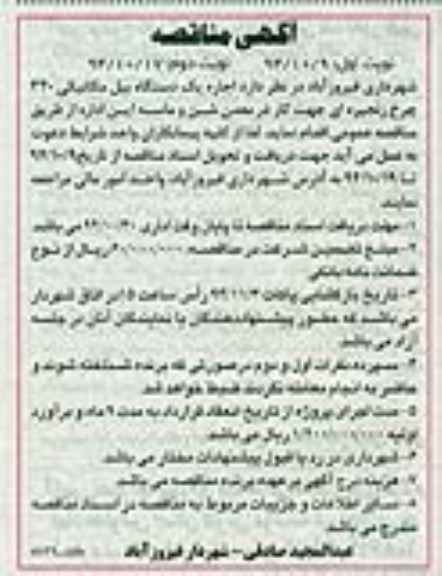 آگهی مناقصه
نوبت اول: ۹۳/۱۰/۹ نوبت دوم: ۹۳/۱۰/۱۷
شهرداری فیروزآباد در نظر دارد اجاره یک دستگاه بیل مکانیکی ۳۲۰
چرخ زنجیره ای جهت کار در معدن شن و ماسه این اداره از طریق
مناقصه عمومی اقدام نماید. لذا از کلیه پیمانکاران واجد شرایط دعوت
به عمل می آید جهت دریافت و تحویل اسناد مناقصه از تاریخ
تا به آدرس شهرداری فیروزآباد، واحد امور مالی مراجعه
نمایند.
۱- مهلت دریافت اسناد مناقصه تا پایان وقت اداری می باشد.
۲- مبلغ تضمین شرکت در مناقصه: ریال از نوع
ضمانت نامه بانکی
۳- تاریخ بازگشایی پاکات رأس ساعت در اتاق شهردار
می باشد که حضور پیشنهاددهندگان یا نمایندگان آنان در جلسه
آزاد می باشد.
۴- سپرده نفرات اول و دوم در صورتی که برنده شناخته شوند و
حاضر به انجام معامله نگردند ضبط خواهد شد.
۵- مدت اجرای پروژه از تاریخ انعقاد قرارداد به مدت ماه و برآورد
اولیه ریال می باشد.
۶- شهرداری در رد یا قبول پیشنهادات مختار می باشد.
۷- هزینه درج آگهی بر عهده برنده مناقصه می باشد.
۸- سایر اطلاعات و جزییات مربوط به مناقصه در اسناد مناقصه
مندرج می باشد.
عبدالمجید صادقی - شهردار فیروزآباد